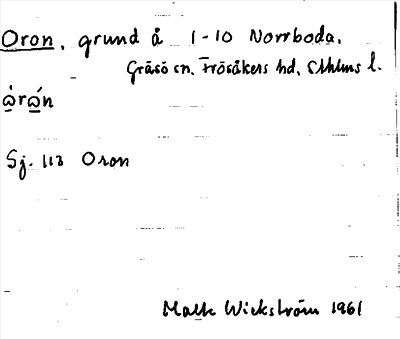 Oron, grund å 1-10 Norrboda.
Gräsö sn. Frösåkers hd, Sthlms l.
ὼrώn
Sj. 113 Oron
Wickström 1961